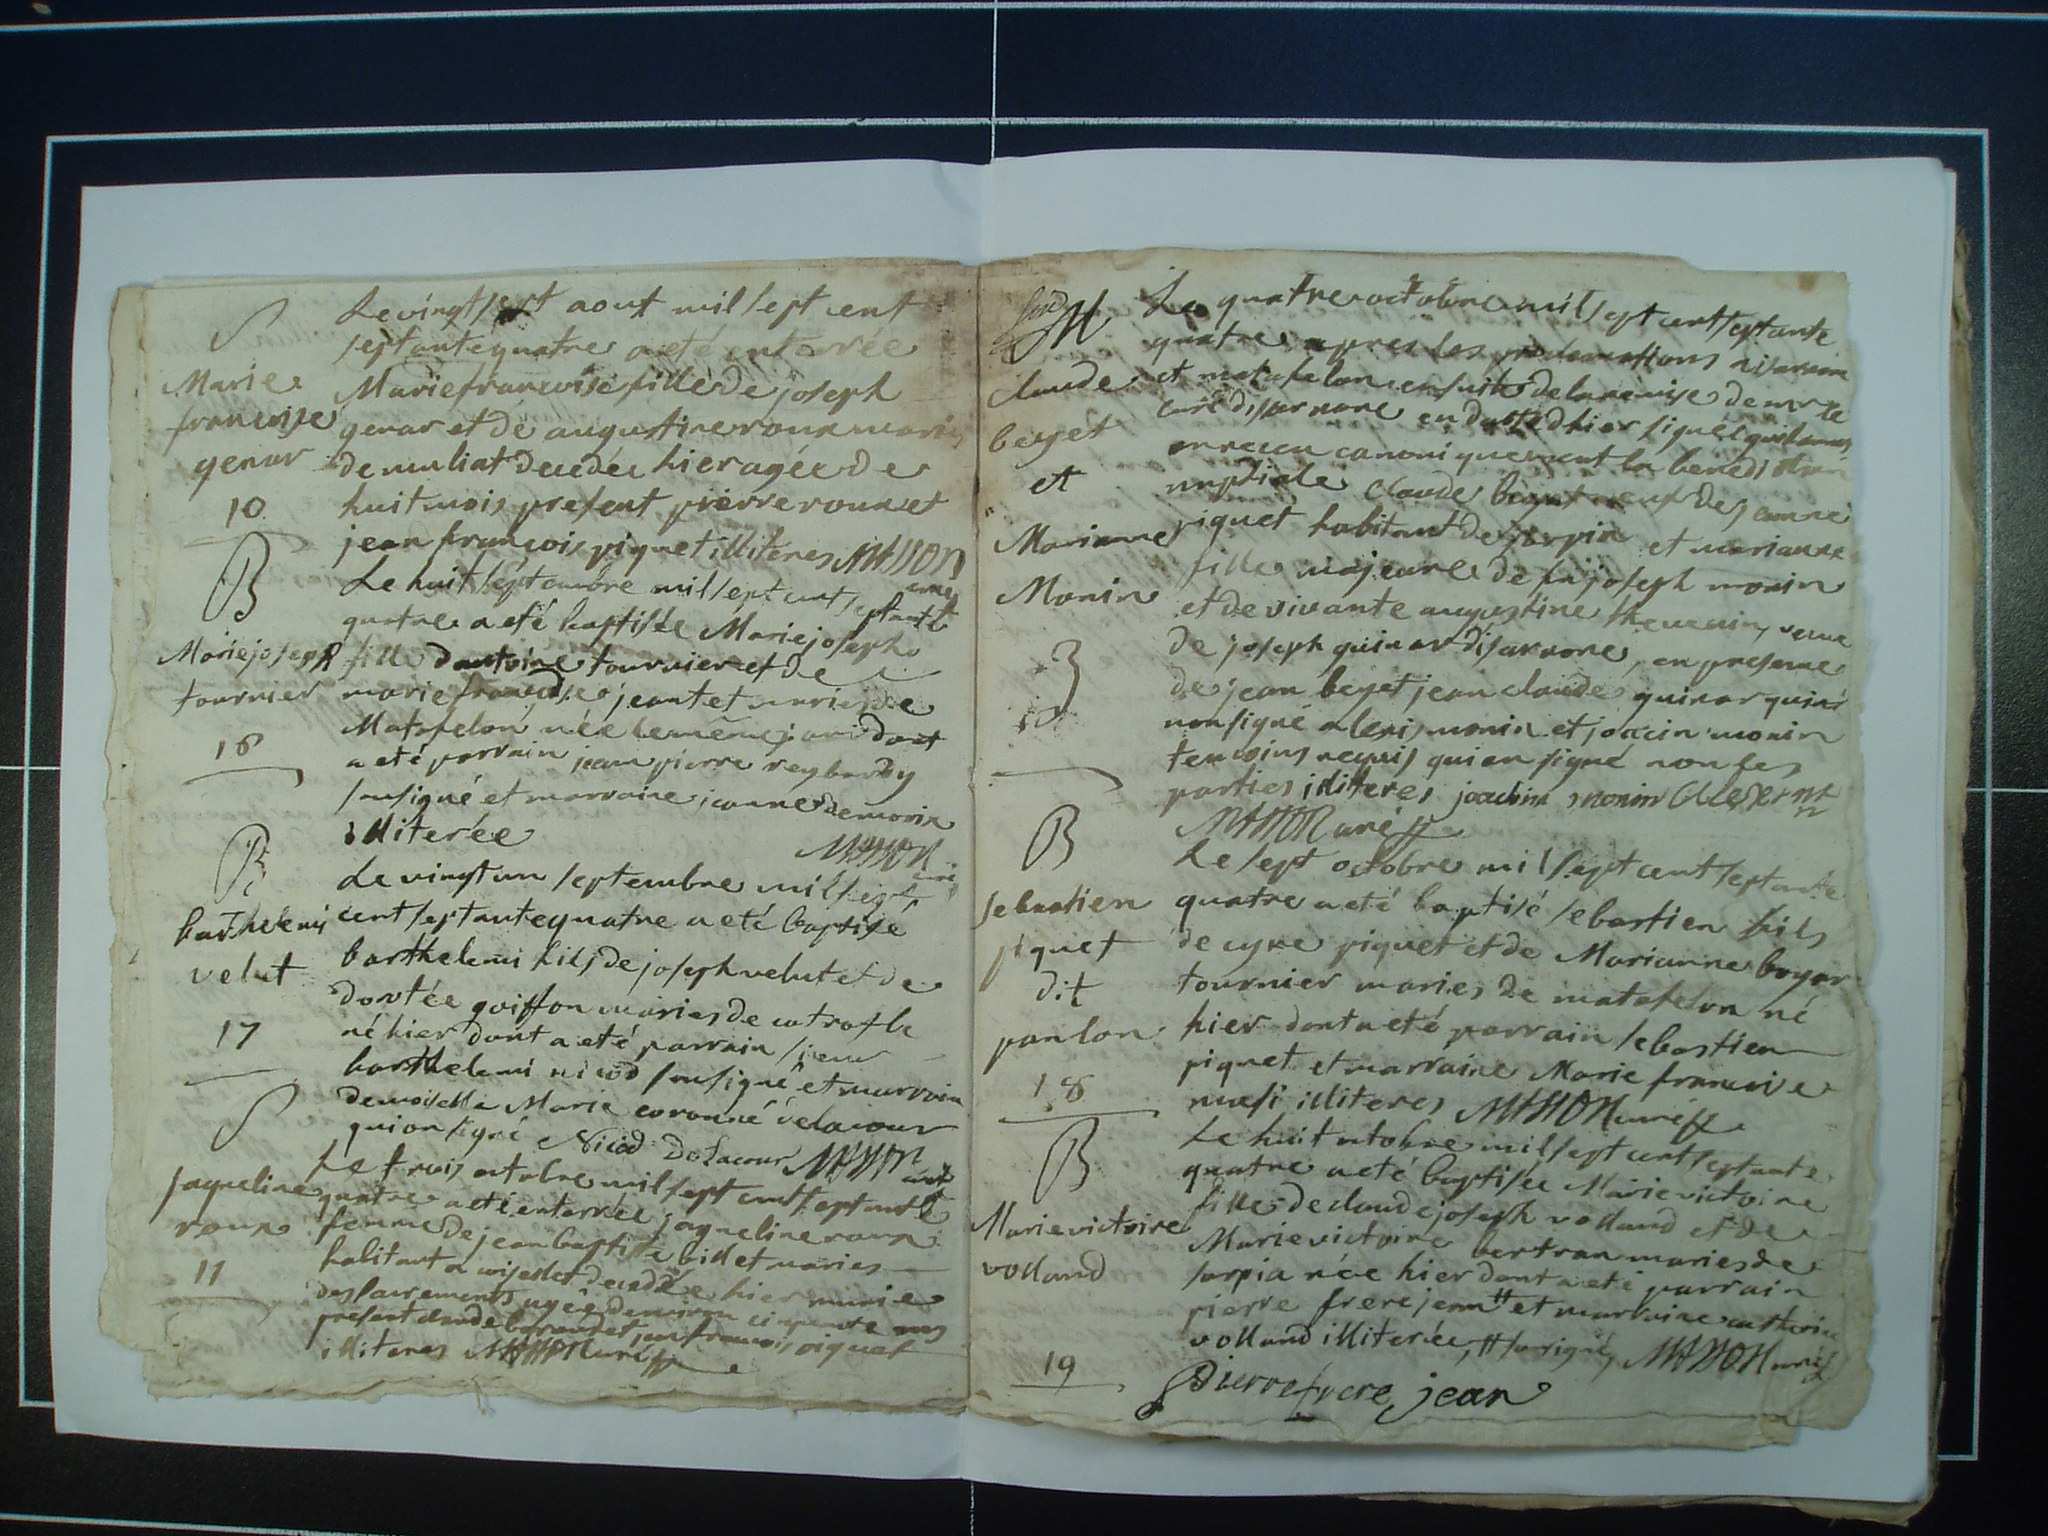 S
Marie
francoise
genar
10
Le vingt sept aout mil sept cent
septante quatre a eté enterrée
Marie francoise fille de joseph
genar et de augustine roux maries
de muliat decedée hier agée de
huit mois present pierre roux et
jean françois piquet illiteres MASSON
curé
B
Marie joseph
tournier
16
Le huit septembre mil sept cent septante
quatre a eté baptisée Marie joseph
fille dantoine tournier et de
marie francoise jeantet maries de
Matafelon née le même jour dont
a eté parrain jean pierre reybardy
sousigné et marraine jeanne demorin
illiterée MASSON
curé
B
barthelemi
velut
17
Le vingt un septembre mil sept
cent septante quatre a eté baptisé
barthelemi fils de joseph velut et de
dortée goiffon maries de
né hier dont a eté parrain sieur
barthelemi nicod sousigné et marraine
demoiselle Marie coronné delacour
qui on signé Nicod Delacour MASSON curé
S
jaqueline
roux
11
Le trois octobre mil sept cent septante
quatre a eté enterrée jaqueline roux
femme de jean baptiste billet maries
habitant a decedée hier munie
des sacrements agée denviron cinquante ans
present claude et jean francois piquet
illiteres MASSON curé
M
claude
beyet
et
Marianne
Monin
3
Le quatre octobre mil sept cent septante
quatre apres les proclamations
et matafelon ensuite de la remise de mr le
curé disarnore en datte dhier signé
on reccu canoniquement la benediction
nuptiale claude beyet veuf de jeanne
piquet habitant de sarpia et marianne
fille majeure de fu joseph monin
et de vivante augustine thevenin, veuve
de joseph guinar disarnore, en presence
de jean beyet jean claude guinar
non signé alexis monin et joacin monin
temoins requis qui on signé non les
parties illiteres joachim monin
MASSON curé
B
sebastien
piquet
dit
panlon
18
Le sept octobre mil sept cent septante
quatre a eté baptisé sebastien fils
de cyre piquet et de Marianne
tournier maries de matafelon né
hier dont a eté parrain sebastien
piquet et marraine Marie francoise
illiteres MASSON curé
B
Marie victoire
volland
19
Le huit octobre mil sept cent septante
quatre a eté baptisée Marie victoire
fille de claude joseph volland et de
Marie victoire bertran maries de
sarpia née hier dont a eté parrain
pierre frerejean ++ et marraine catherine
volland illiterée, ++ sousigné, MASSON curé
Pierre frere jean